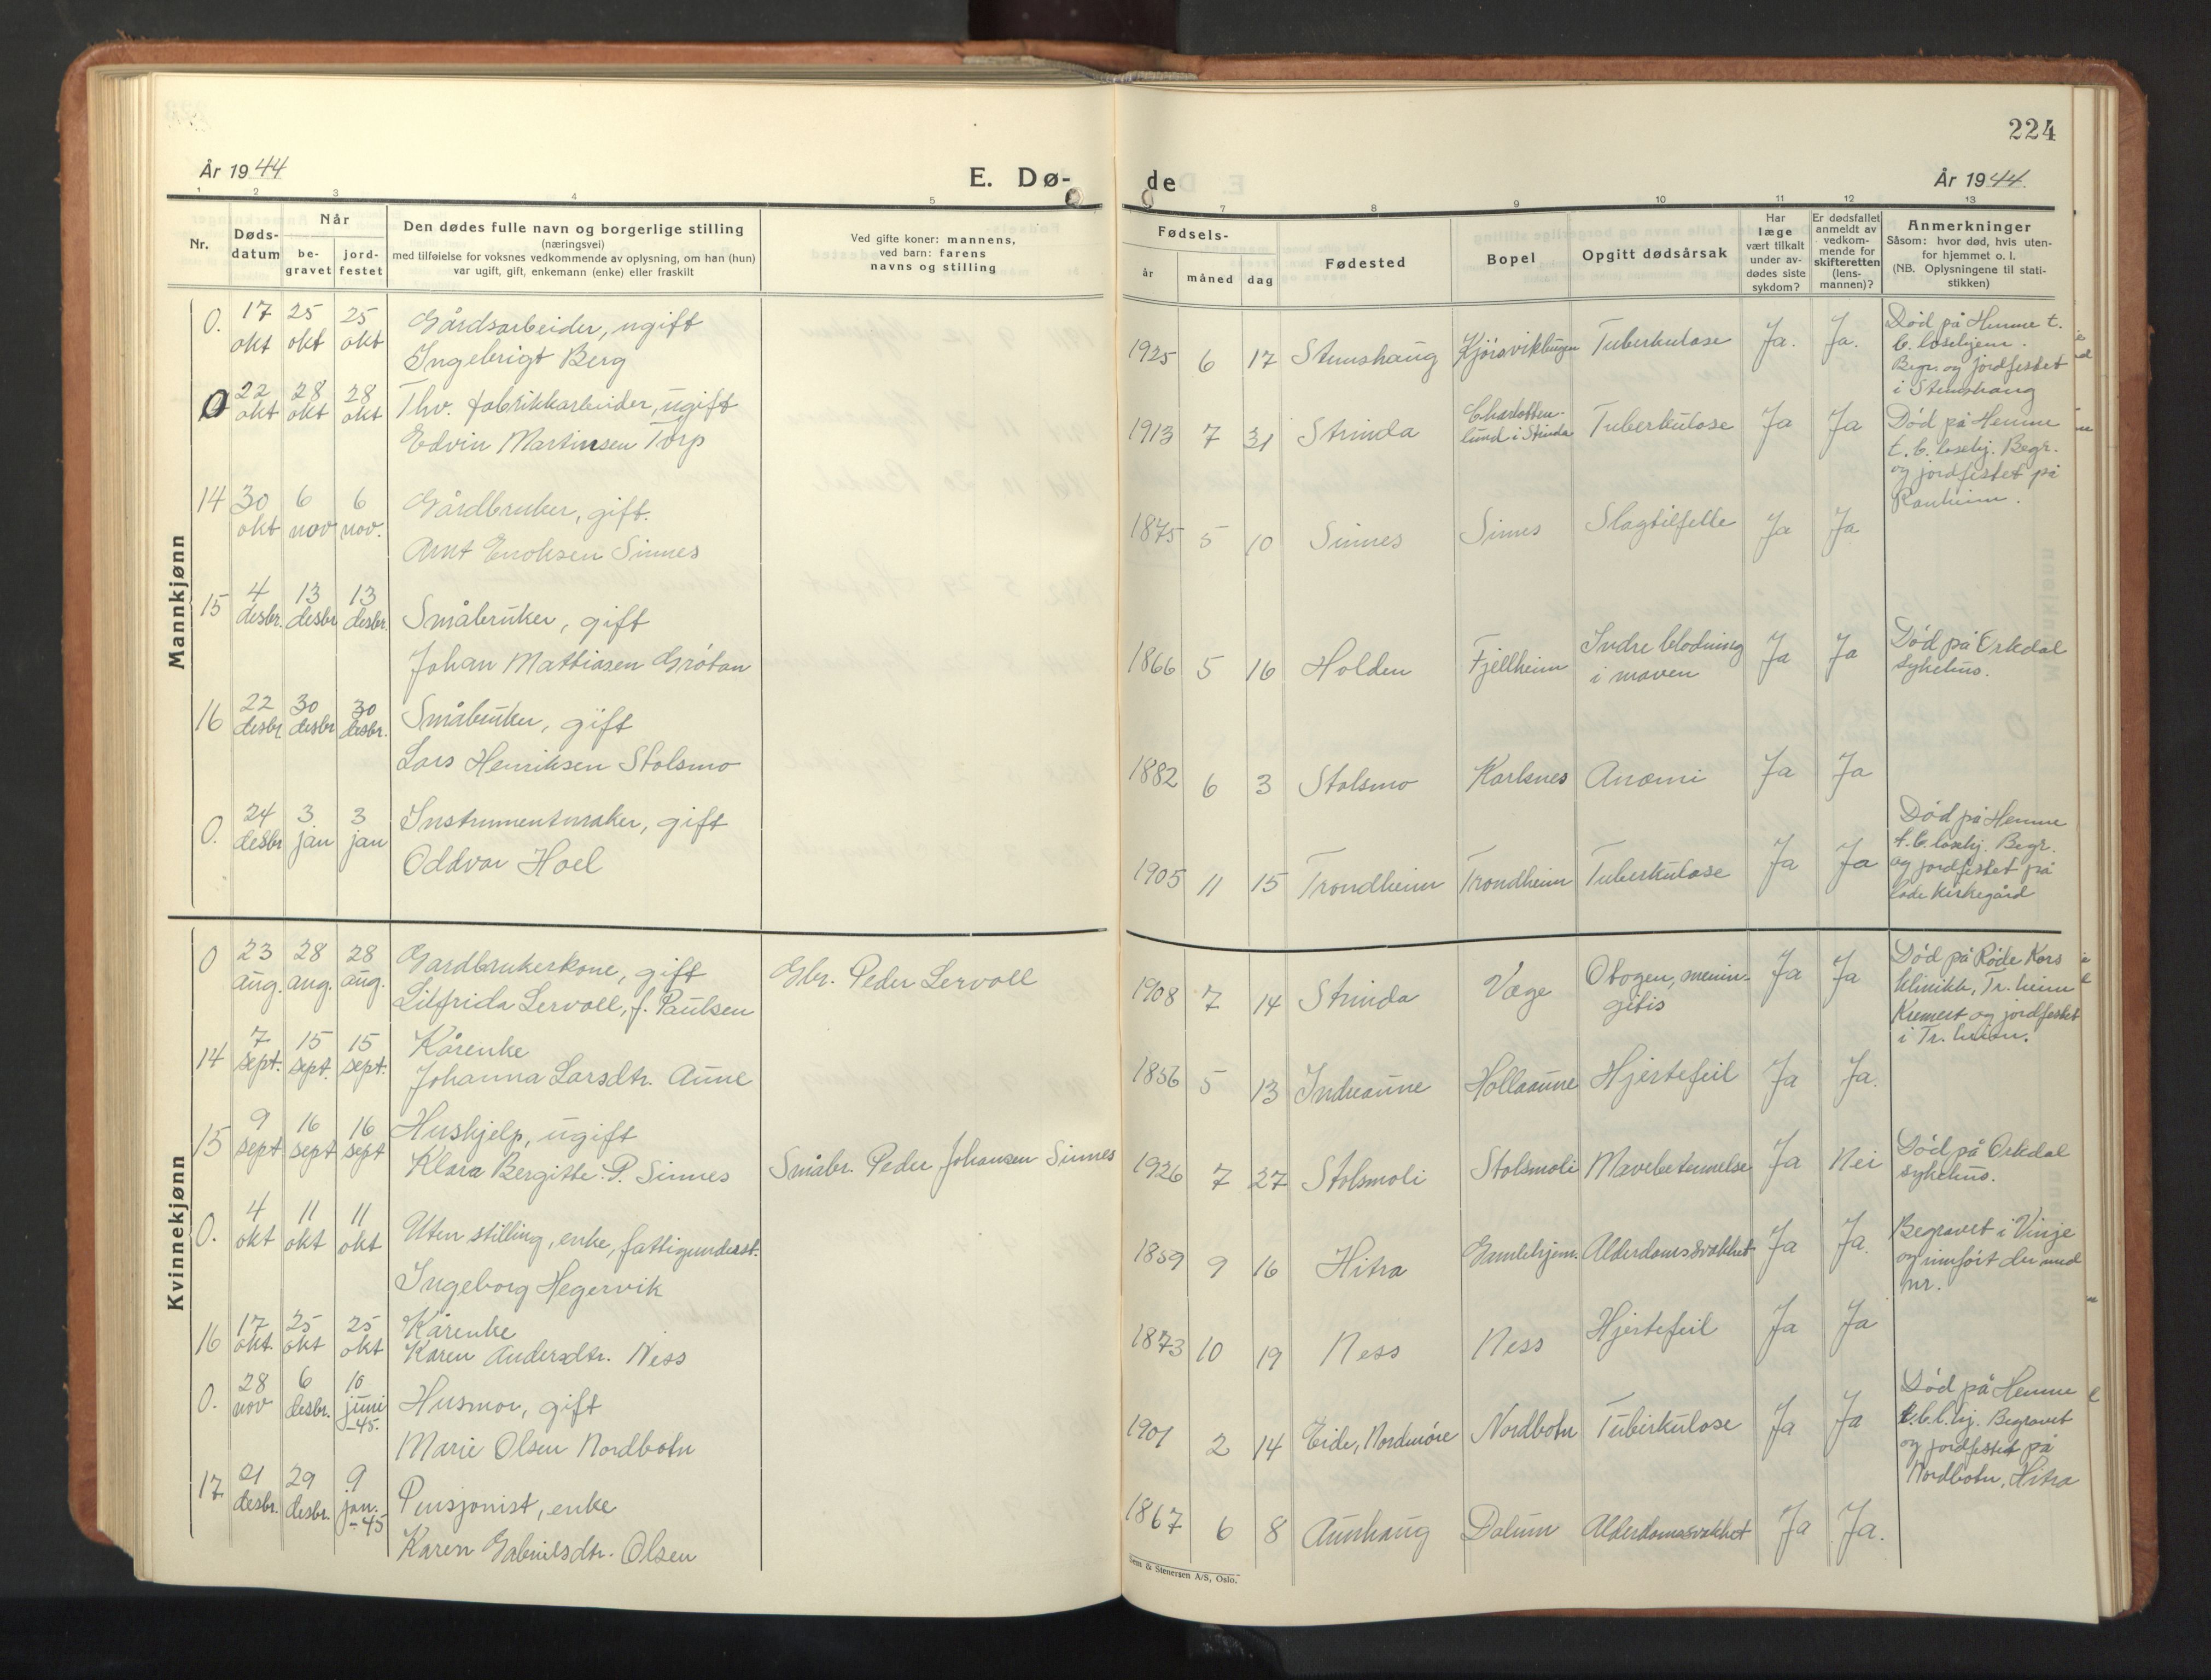 224
År 1944
E. Dø-
de
År 1944.
1 2 3 4 5
7 8 9 10 11 12 13
Nr.
Døds-
datum
Når
be-
gravet
jord-
festet
Den dødes fulle navn og borgerlige stilling
(næringsvei)
med tilføielse for voksnes vedkommende av oplysning, om han (hun)
var ugift, gift, enkemann (enke) eller fraskilt
Ved gifte koner: mannens,
ved barn: farens
navns og stilling
Fødsels-
år
måned
dag
Fødested
Bopel
Opgitt dødsårsak
Har
læge
vært tilkalt
under av-
dødes siste
sykdom?
Er dødsfallet
anmeldt av
vedkom-
mende for
skifteretten
(lens-
mannen)?
Anmerkninger
Såsom: hvor død, hvis uten-
for hjemmet o. l.
(NB. Oplysningene til stati-
stikken)
Mannkjønn
0. 17 okt 25 okt 25 okt
Gårdsarbeider, ugift
Ingebrigt Berg
1925 6 17 Stemshaug Kjørsvikbugen Tuberkulose Ja. Ja.
Død på Hemne t.
b. losehjem.
Begr. og jordfestet
i Stemshaug
0 22 okt 28 okt 28 okt
Thv. fabrikkarbeider, ugift
Edvin Martinsen Torp
1913 7 31 Strinda
Charlotten-
lund i Strinda
Tuberkulose Ja Ja
Død på Hemne
t. b. losehj. Begr.
og jordfestet på
Ranheim.
14 30 okt 6 nov 6 nov.
Gårdbruker, gift.
Arnt Enoksen Sinnes
1875 5 10 Sinnes Sinnes Slagtilfelle Ja Ja
15 4 desbr. 13 desbr 13 desbr.
Småbruker, gift
Johan Mattiasen Grötan
1866 5 16 Holden Fjellheim
Indre blödning
i maven
Ja Ja
Död på Orkdal
sykehus.
16 22 desbr 30 desbr 30 desbr.
Småbruker, gift
Lars Henriksen Stolsmo
1882 6 3 Stolsmo Karlsnes Anæmi Ja Ja
0. 24 desbr 3 jan 3 jan
Instrumentmaker, gift
Oddvar Hoel
1905 11 15 Trondheim Trondheim Tuberkulose Ja Ja
Död på Hemne
t. b. losehj. Begr.
og jordfestet på
Lade kirkegård
Kvinnekjønn
0 23 aug. 28 aug. 28 aug.
Gardbrukerkone, gift
Lilfrida Lervoll, f. Paulsen
Gbr. Peder Lervoll
1908 7 14 Strinda Væge
Otogen, menin-
gitis
Ja Ja
Död på Röde Kors
klinikk, Tr.heim
Kremert og jordfestet
i Tr.heim.
14 7 sept. 15 sept. 15 sept.
Kårenke
Johanna Larsdtr. Aune
1856 5 13 Indreaune Hollaaune Hjertefeil Ja Ja.
15 9 sept 16 sept 16 sept
Hushjelp, ugift
Klara Bergitte P. Sinnes
Småbr. Peder Johansen Sinnes
1926 7 27 Stolsmoli Stolsmoli Mavebetennelse Ja Nei
Död på Orkdal
sykehus.
0. 4 okt 11 okt 11 okt
Uten stilling, enke, fattigunderst.
Ingeborg Hegervik
1859 9 16 Hitra Gamlehjem. Alderdomssvakhet Ja Ja.
Begravet i Vinje
og innfört der med
nr.
16 17 okt. 25 okt 25 okt
Kårenke
Karen Andersdtr. Ness
1873 10 19 Ness Ness Hjertefeil Ja Ja
0. 28 nov 6 desbr. 10 juni -45.
Husmor, gift
Marie Olsen Nordbotn
1901 2 14 Eide, Nordmöre Nordbotn Tuberkulose Ja Ja
Död på Hemne
t.b.l.hj. Begravet
og jordfestet på
Nordbotn, Hitra
17 21 desbr. 29 desbr. 9 jan. -45
Pensjonist, enke
Karen Gabrielsdtr. Olsen
1867 6 8 Aunhaug Dalum Alderdomssvakhet Ja Ja.
Sem & Stenersen A/S, Oslo.